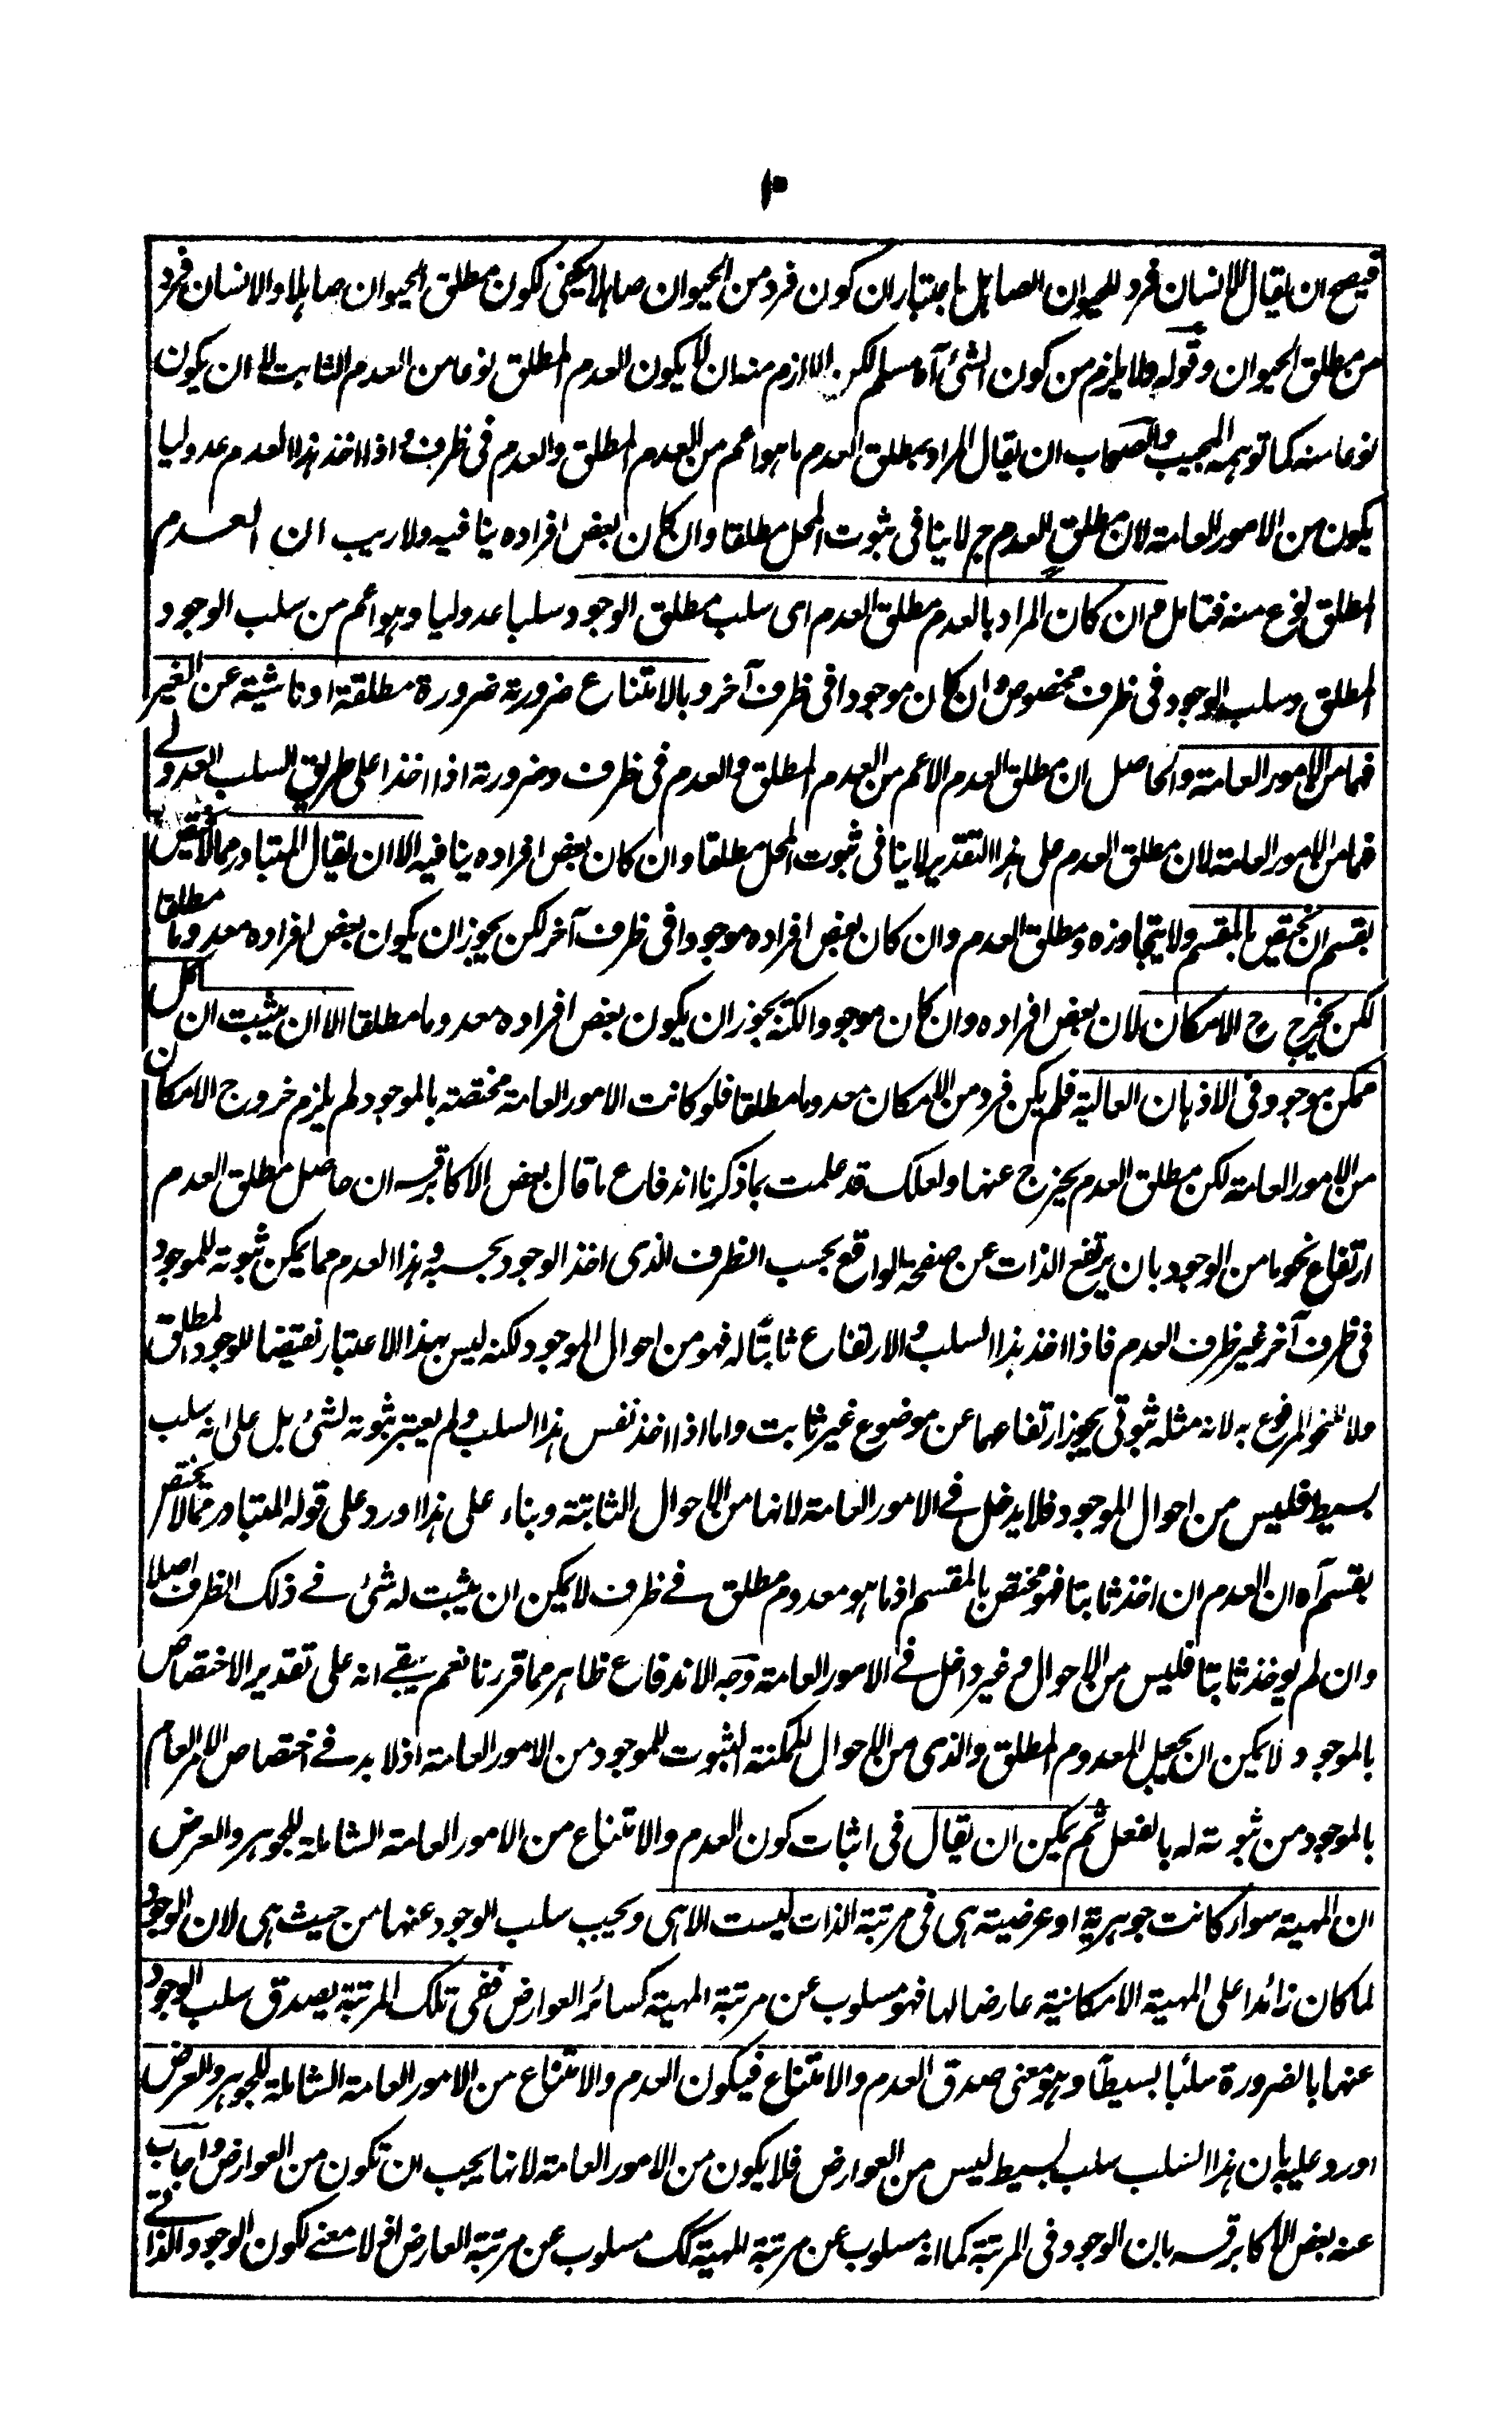 ١٠
فيصح ان يقال الانسان فرد للحيوان الصاهل باعتبار ان كون فرد من الحيوان صاهلا يكفى لكون مطلق الحيوان صاهلا والانسان فرد
من مطلق الحيوان وقوله ولا يلزم من كون الشئ آه مسلم لكن اللازم منه ان لا يكون العدم المطلق نوعا من العدم الثابت لا ان يكون
نوعا منه كما توهمه المجيب والصحاب ان يقال المراد بمطلق العدم ما هو اعم من العدم المطلق والعدم فى ظرف واذا اخذ هذا العدم عدوليا
يكون من الامور العامة لان مطلق العدم ح لا ينافى ثبوت المحل مطلقا وان كان بعض افراده ينافيه ولا ريب ان العدم
المطلق نوع منه فتامل م ان كان المراد بالعدم مطلق العدم اى سلب مطلق الوجود سلبا عدوليا وهو اعم من سلب الوجود
المطلق وسلب الوجود فى ظرف مخصوص وان كان موجودا فى ظرف آخر وبالامتناع ضرورته ضرورة مطلقة او ناشية عن الغير
فهما من الامور العامة والحاصل ان مطلق العدم الاعم من العدم المطلق والعدم فى ظرف وضرورته اذا اخذا على طريق السلب العدولے
فهما من الامور العامة لان مطلق العدم على هذا التقدير لا ينافى ثبوت المحل مطلقا وان كان بعض افراده ينافيه الا ان يقال المتبادر مما لا يختص
بقسم ان يختص بالمقسم ولا يتجاوزه ومطلق العدم وان كان بعض افراده موجودا فى ظرف آخر لكن يجوز ان يكون بعض افراده معدوما مطلقا
لكن يخرج ح الامكان لان بعض افراده وان كان موجودا لكنه يجوز ان يكون بعض افراده معدوما مطلقا الا ان يثبت ان كل
ممكن موجود فى الاذهان العالية فلم يكن فرد من الامكان معدوما مطلقا فلو كانت الامور العامة مختصة بالموجود لم يلزم خروج الامكان
من الامور العامة لكن مطلق العدم يخرج عنها ولعلك قد علمت بما ذكرنا اندفاع ما قال بعض الاكابر قسه ان حاصل مطلق العدم
ارتفاع نحو ما من الوجود بان يرتفع الذات عن صفحة الواقع بحسب الظرف الذى اخذ الوجود بحسبه وهذا العدم مما يمكن ثبوته للموجود
فى ظرف آخر غير ظرف العدم فاذا اخذ هذا السلب والارتفاع ثابتا له فهو من احوال الموجود لكنه ليس بهذا الاعتبار نقيضا للوجود المطلق
ولا للنحو المرفوع به لانه مثله ثبوتى يجوز ارتفاعهما عن موضوع غير ثابت واما اذا اخذ نفس هذا السلب ولم يعتبر ثبوته لشئ بل على انه سلب
بسيط فليس من احوال الموجود فلا يدخل فے الامور العامة لانها من الاحوال الثابتة وبناء على هذا اورد على قوله المتبادر مما لا يختص
بقسم آه ان العدم ان اخذ ثابتا فهو مختص بالمقسم اذ ما هو معدوم مطلق فے ظرف لا يمكن ان يثبت له شئ فے ذلك الظرف اصلا
وان لم يوخذ ثابتا فليس من الاحوال وغير داخل فے الامور العامة وجه الاندفاع ظاهر مما قررنا نعم يبقے انه على تقدير الاختصاص
بالموجود لا يمكن ان يجعل المعدوم المطلق والذى من الاحوال الممكنة الثبوت للموجود من الامور العامة اذ لا بد فے اختصاص الامر العام
بالموجود من ثبوته له بالفعل ثم يمكن ان يقال فى اثبات كون العدم والامتناع من الامور العامة الشاملة للجوهر والعرض
ان المهية سواء كانت جوهرية او عرضية هى فى مرتبة الذات ليست الا هى ويجب سلب الوجود عنها من حيث هى لان الوجود
لما كان زائدا على المهية الامكانية عارضا لها فهو مسلوب عن مرتبة المهية كسائر العوارض ففى تلك المرتبة يصدق سلب الوجود
عنها بالضرورة سلبا بسيطا وهو معنى صدق العدم والامتناع فيكون العدم والامتناع من الامور العامة الشاملة للجوهر والعرض
اورد عليه بان هذا السلب سلب بسيط ليس من العوارض فلا يكون من الامور العامة لانها يجب ان تكون من العوارض واجاب
عنه بعض الاكابر قسه بان الوجود فى المرتبة كما انه مسلوب عن مرتبة المهية كك مسلوب عن مرتبة العارض اذ لا معنے لكون الوجود الذاتے